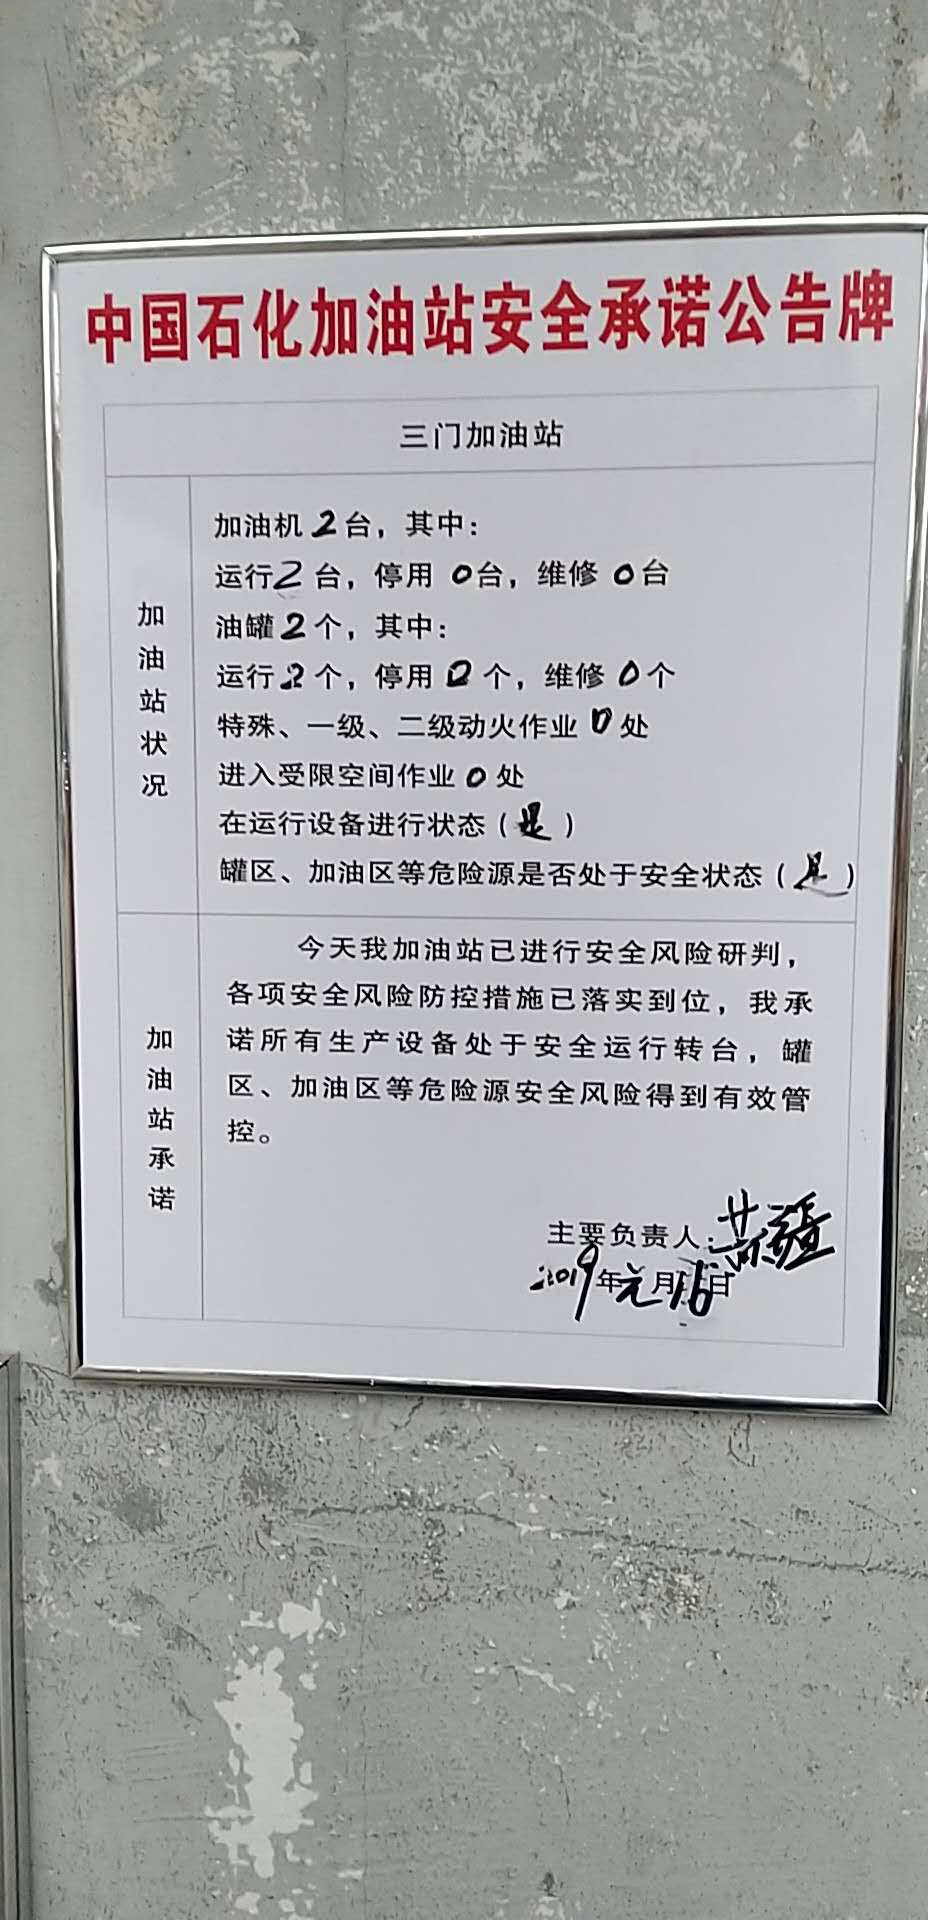 中国石化加油站安全承诺公告牌
三门加油站
加油站状况
加油机2台，其中：
运行2台，停用0台，维修0台
油罐2个，其中：
运行2个，停用0个，维修0个
特殊、一级、二级动火作业0处
进入受限空间作业0处
在运行设备进行状态（是）
罐区、加油区等危险源是否处于安全状态（是）
加油站承诺
今天我加油站已进行安全风险研判，
各项安全风险防控措施已落实到位，我承
诺所有生产设备处于安全运行转台，罐
区、加油区等危险源安全风险得到有效管
控。
主要负责人：
2019年元月16日